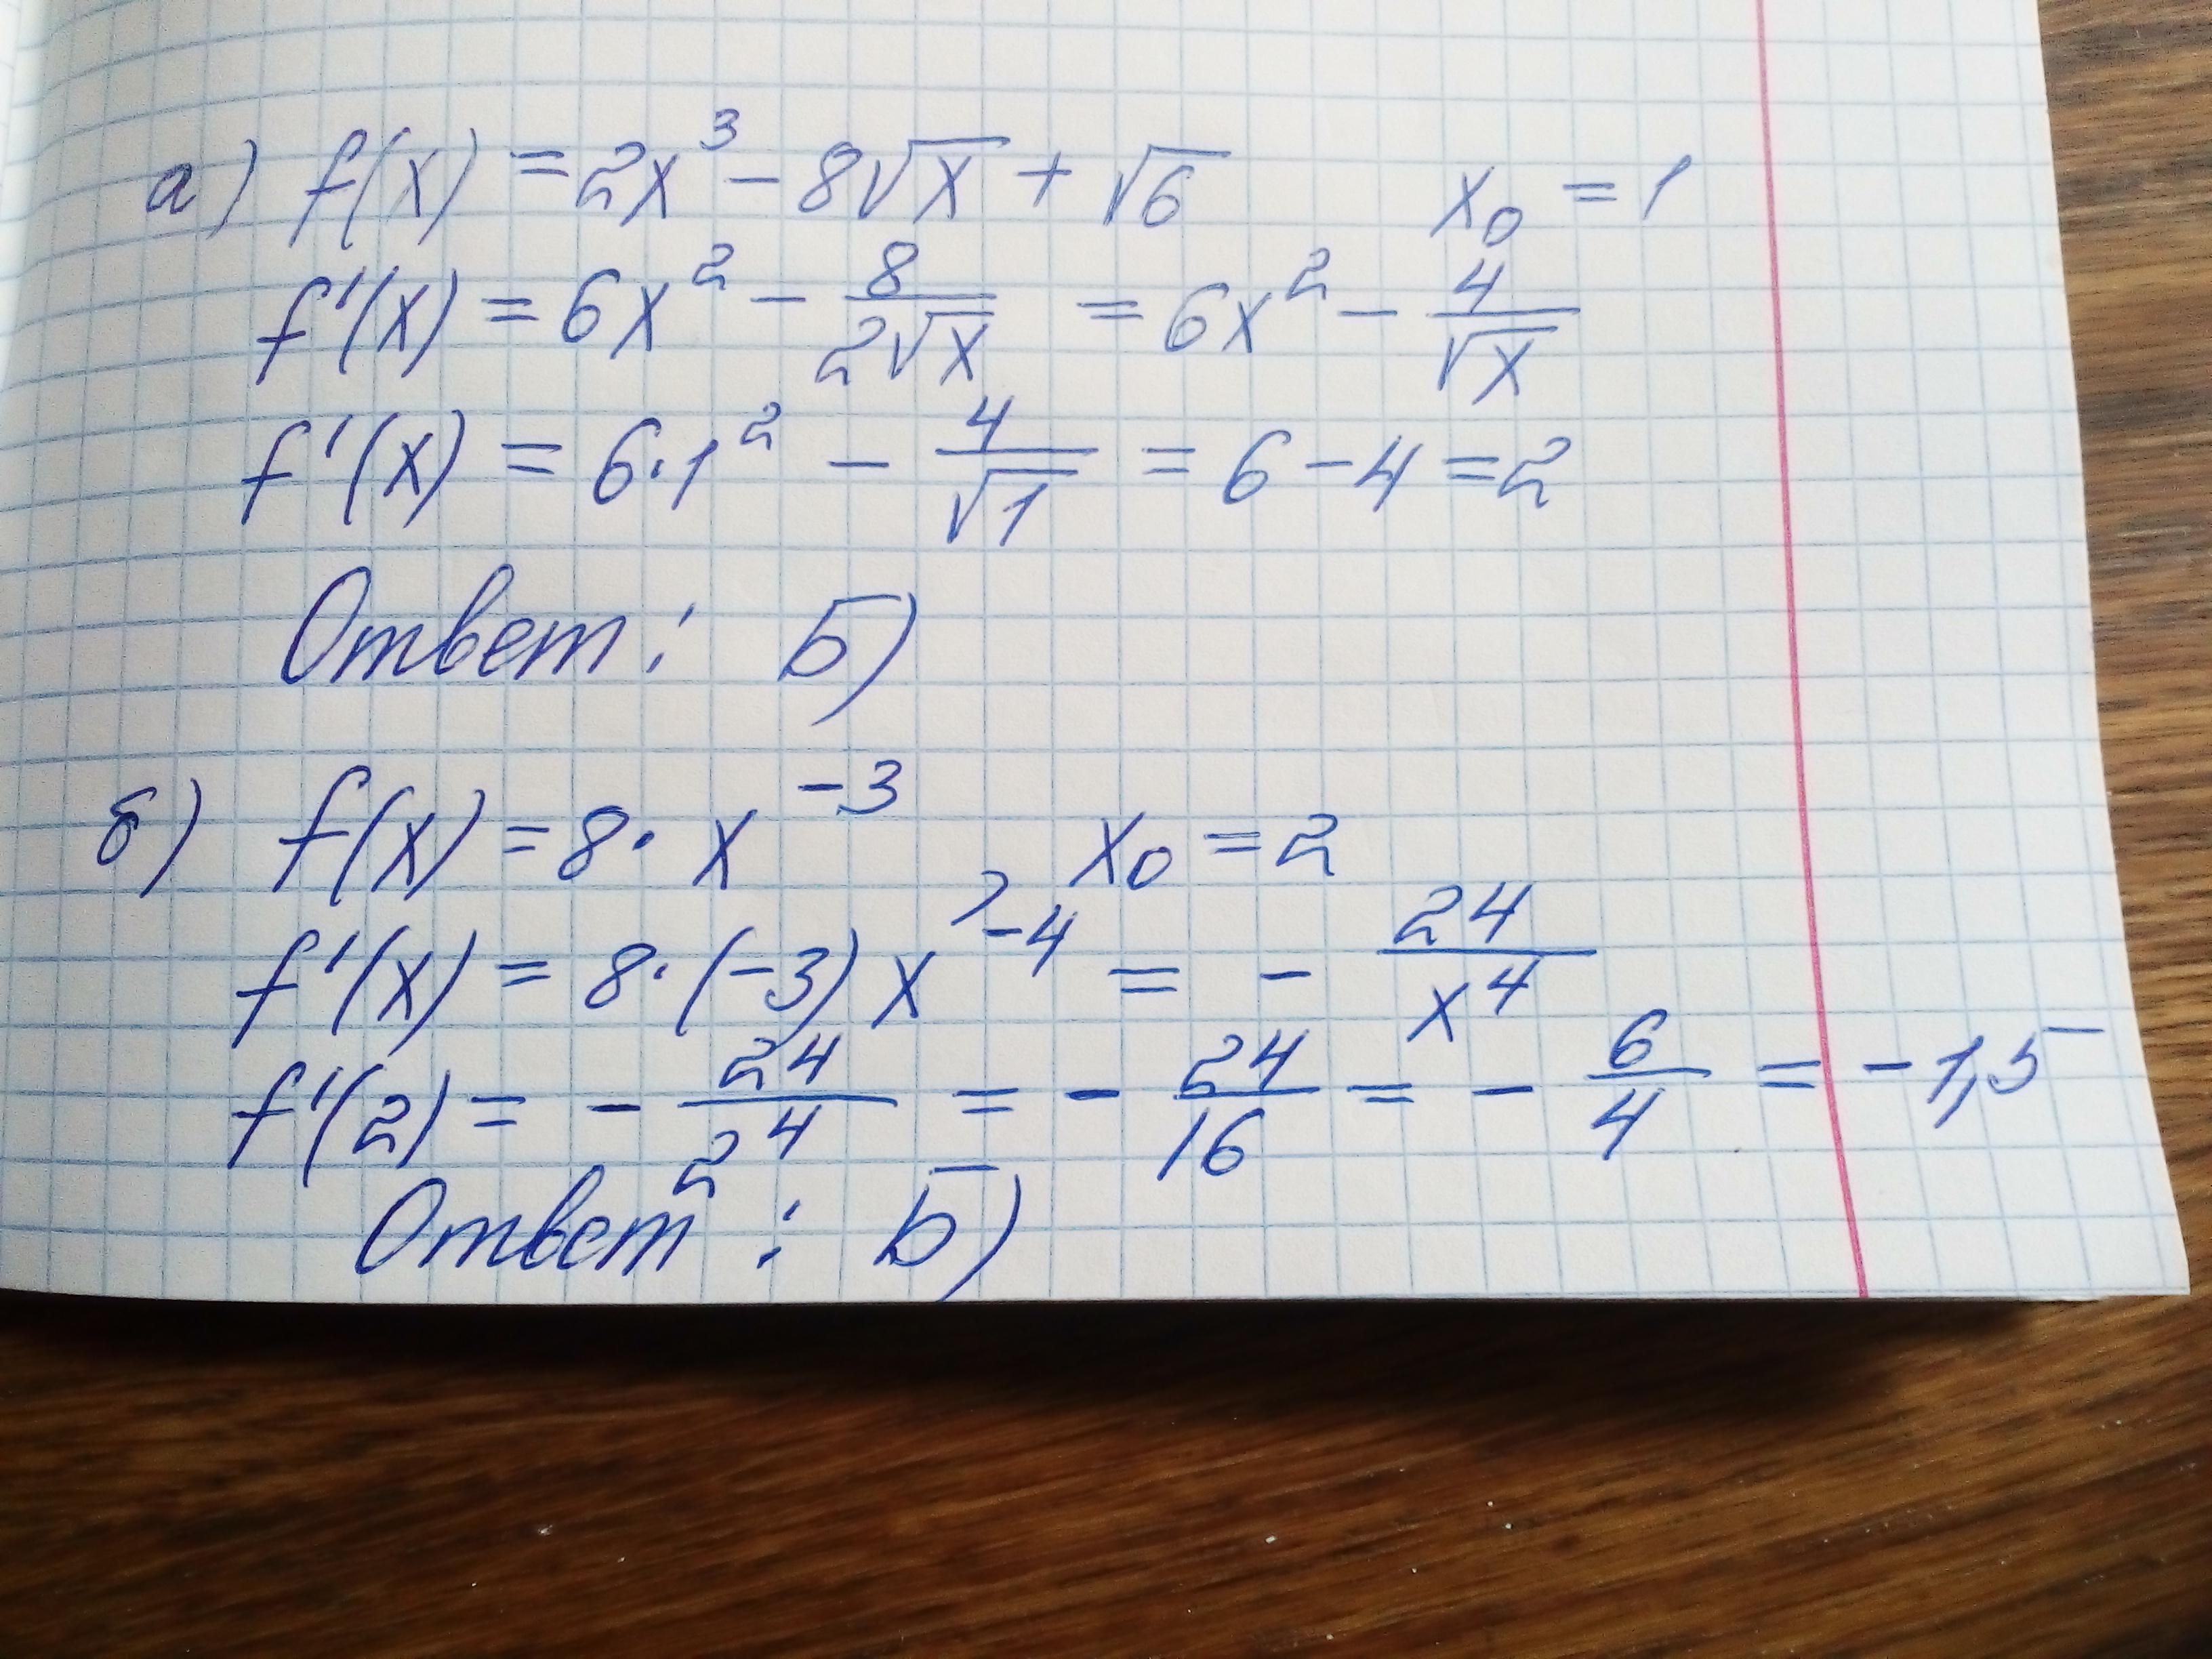 а) f(x) = 2x³ − 8√x + √6 x₀ = 1
f'(x) = 6x² − 8/(2√x) = 6x² − 4/√x
f'(x) = 6·1² − 4/√1 = 6 − 4 = 2
Ответ: Б)
б) f(x) = 8· x⁻³ x₀ = 2
f'(x) = 8·(−3) x⁻⁴ = − 24/x⁴
f'(2) = − 24/2⁴ = − 24/16 = − 6/4 = −1,5
Ответ: Б)